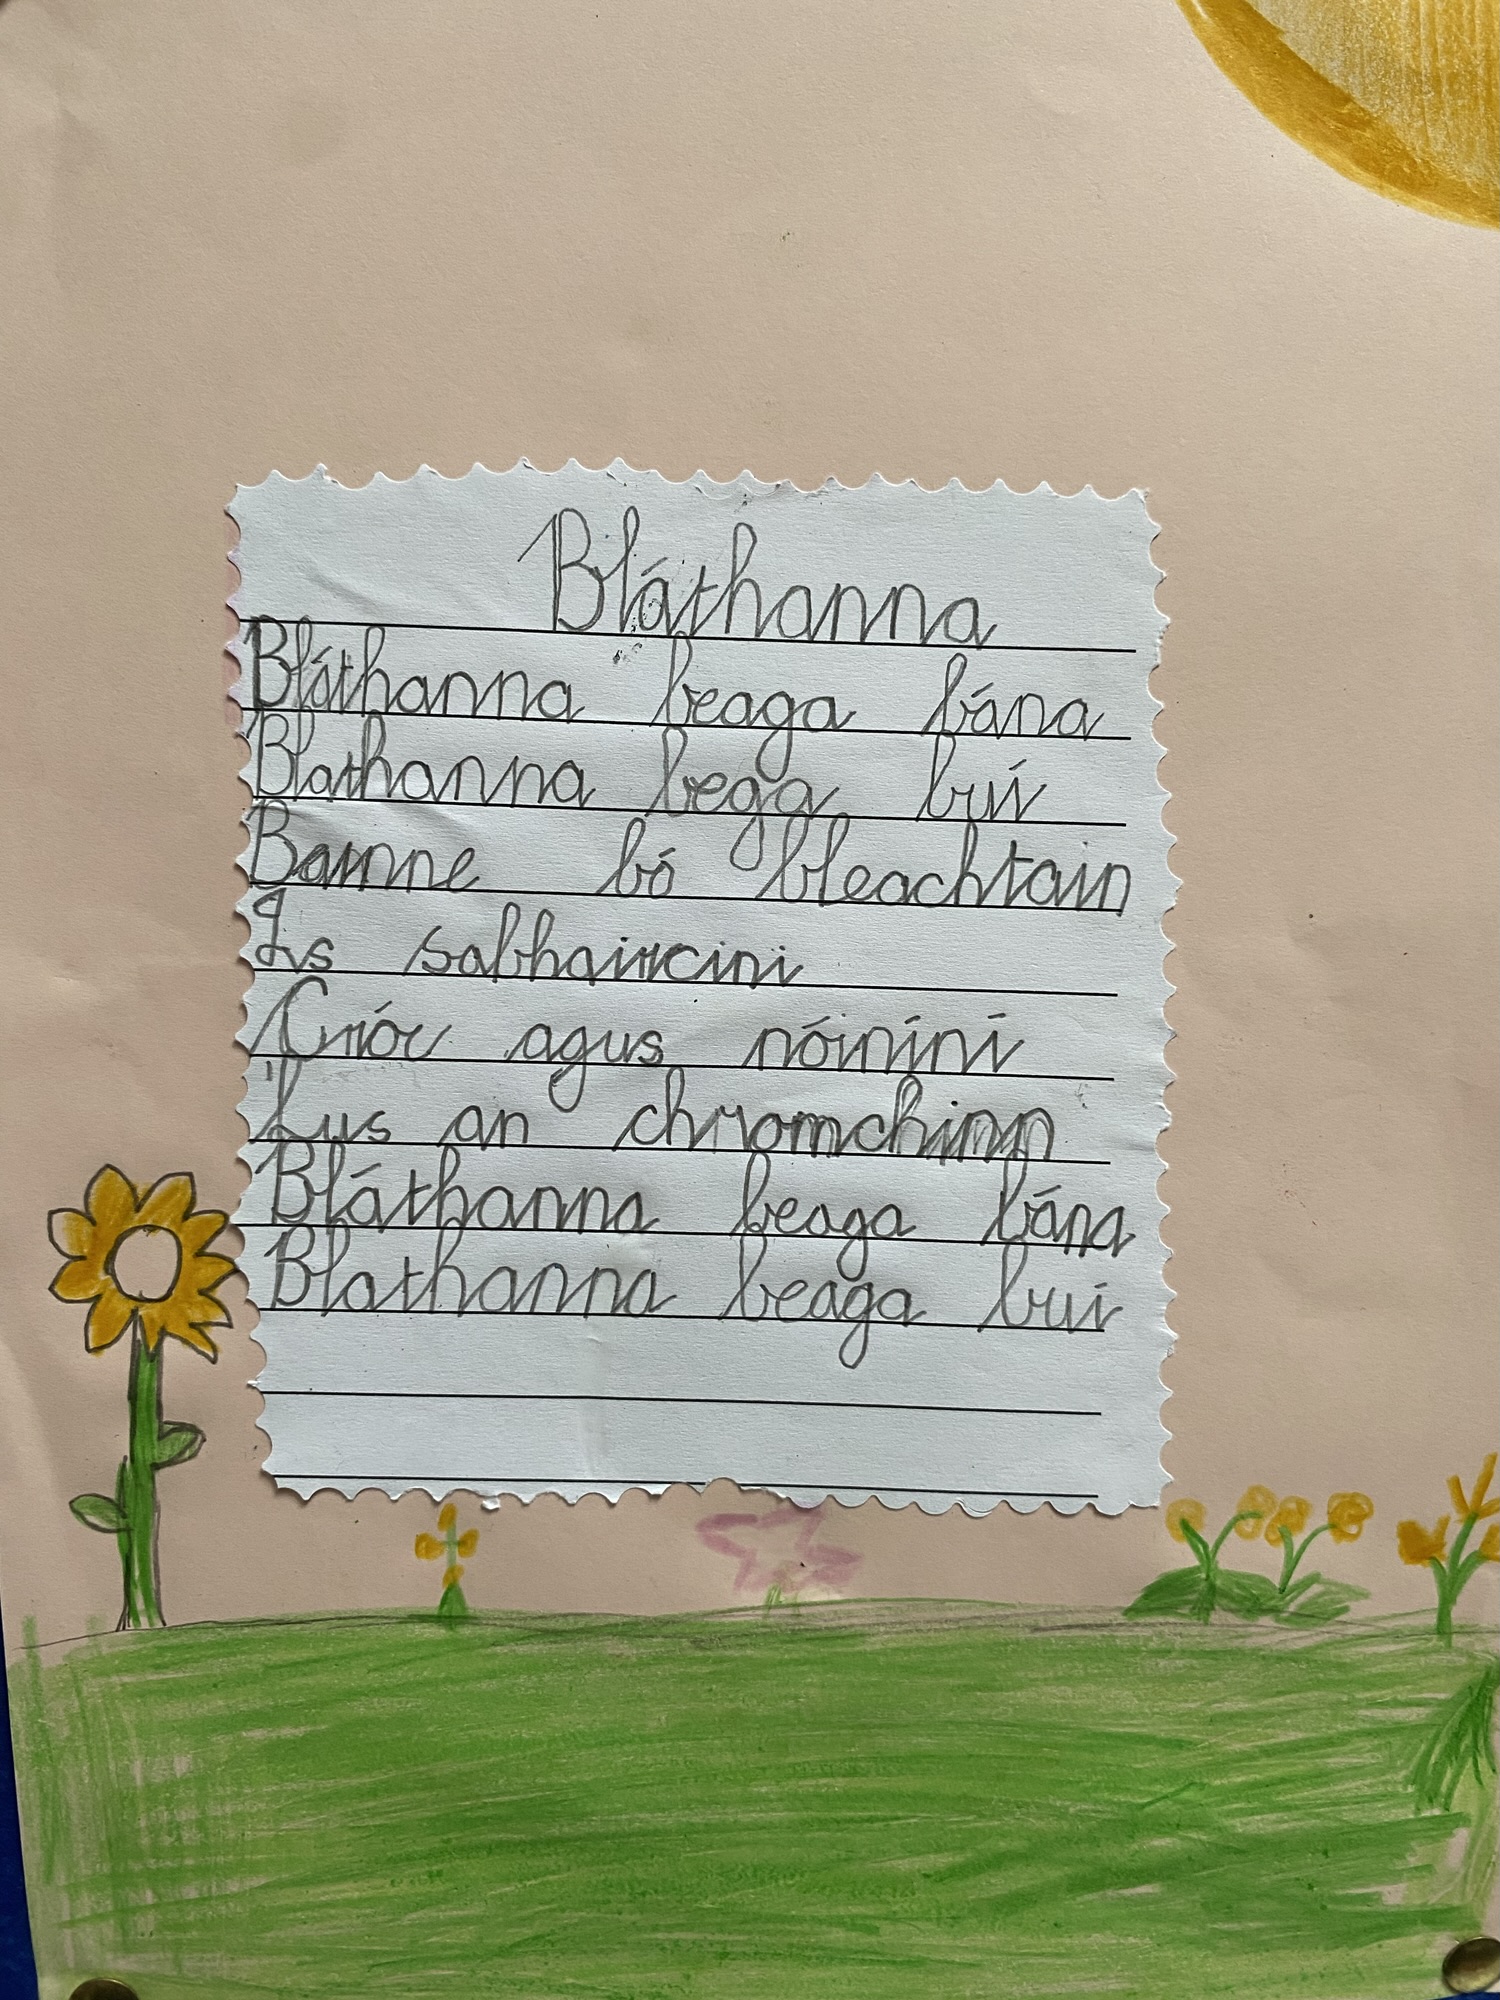 Bláthanna
Bláthanna beaga bána
Blathanna bega buí
Bainne bó bleachtain
Is sabhaircini
Cróc agus nóiníní
Lus an chromchinn
Bláthanna beaga bána
Blathanna beaga bui